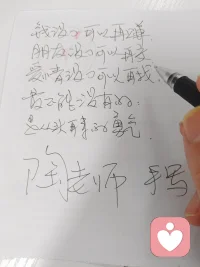 钱没了可以再赚
朋友没了可以再交
爱情没了可以再找
最不能没有的:
是从头再来的勇气
陶老师 手写